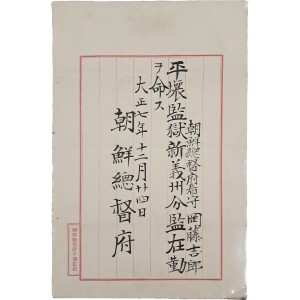 朝鮮總督府看守 岡藤吉郎
平壤監獄新義州分監在勤
ヲ命ス
大正七年十二月廿四日
朝鮮總督府